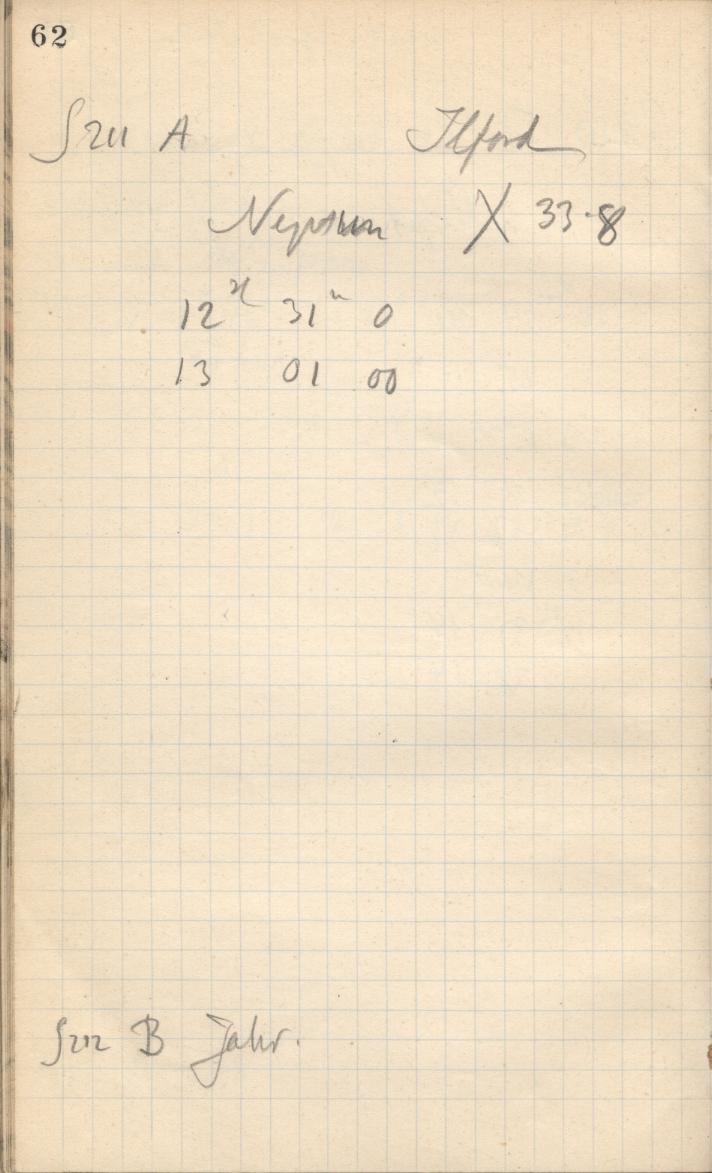 62
S 211 A Ilford
Neptun X 33.8
12 h 31 m 0
13 01 00
S 212 B Jahr.